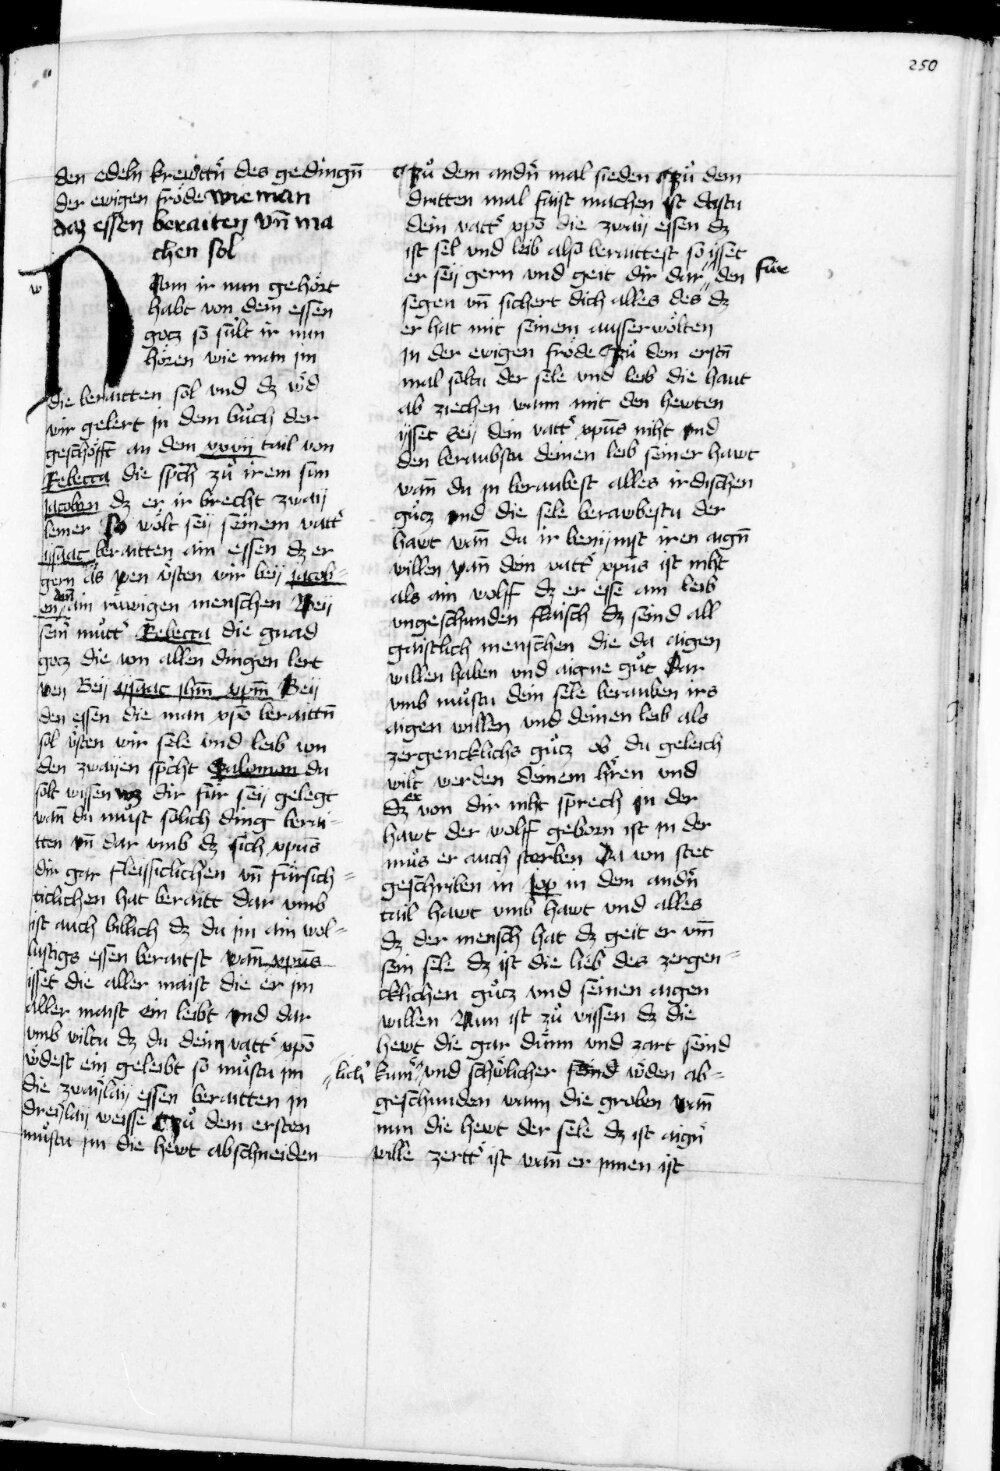 250
den edeln krewttn̄ des gedingn̄
der ewigen fröde Wie man
daz essen beraiten vn̄ ma
chen sol
Nun ir nun gehört
habt von dem essen
gotz so sült ir nun
hören wie man im
die beraitten sol vnd dz wͤd
wir gelert in dem buͦch der
geschöfft an dem xxvij tail von
Rebecca die sp̄ch zuͦ irem sun
Jacoben dz er ir brecht zwaij
kemer So wölt seij seinem vattͤ
ysaac beraitten ain essen dz er
gern äs wen vͤsten wir beij Jacob-
en den ain räwigen menschen Beij
sein̄ muͦttͤ Rebecca die gnad
gotz die von allen dingen lert
wen Beij ysaac ihm̄ xpm̄ Beij
den essen die man xp̄o beraittn̄
sol vͤsten wir sele vnd leib von
den zwaijen sp̄cht Salomon du
solt wissen wz dir für seij gelegt
wan̄ du muͦst solich ding berai-
tten vn̄ dar vmb dz sich xpūs
dir gar fleissiclichen vn̄ fürsich-
ticlichen hat beraitt dar vmb
ist auch billich dz du im ain wol-
lustigs essen beraitst wan̄ xpūs
isset die aller maist die er im
aller maist ein leibt vnd dar
vmb wiltu dz du dein vattͤ xp̄o
wͤdest ein geleibt so muͦstu im
die zwaijlaij essen beraitten in
dreijlaij weisse Czuͦ dem ersten
muͦstu im die hewt abschneiden
Czuͦ dem andn̄ mal sieden Czuͦ dem
dritten mal faist machen Ist dastu
dein vattͤ xp̄o die zwaij essen dz
ist sel vnd leib also beraittest so isset
er seij gern vnd geit dir dar den
für
segen vn̄ sichert dich alles des dz
er hat mit seinem ausserwölten
in der ewigen fröde Czuͦ dem erstn̄
mal soltu der sele vnd leib die haut
ab ziechen wann mit den hewten
ijsset seij dein vattͤ xpūs niht vnd
den beraubstu deinen leib seiner hawt
wan̄ du in beraubest alles irdischen
guͦtz vnd die sele berawbestu der
hawt wan̄ du ir benijmst iren aign̄
willen wan̄ dein vattͤ xpūs ist niht
als ain wolff dz er esse ain leib
vngeschunden flaisch dz seind all
gaistlich menschen die da aigen
willen haben vnd aigne guͦt Dar
vmb muͦstu dein sele berauben irs
aigen willen vnd deinen leib als
zergencklichs guͦtz ob du geleich
wilt werden deinem hͤren vnd
dz er von dir niht sprech in der
hawt der wolff geborn ist in der
muͦs er auch sterben Da von stet
geschriben in Jop in dem andn̄
tail hawt vmb hawt vnd alles
dz der mensch hat dz geit er vm̄
sein sele dz ist die lieb des zergen-
cklichen guͦtz vnd seinen aigen
willen Nun ist zuͦ wissen dz die
hewt die gar dünn vnd zart seind
lichͤ kumͤ vnd schwͤlicher seind wͤden ab-
geschunden wann die groben wan̄
nun die hewt der sele dz ist aignͤ
wille zerttͤ ist wan̄ er innen ist